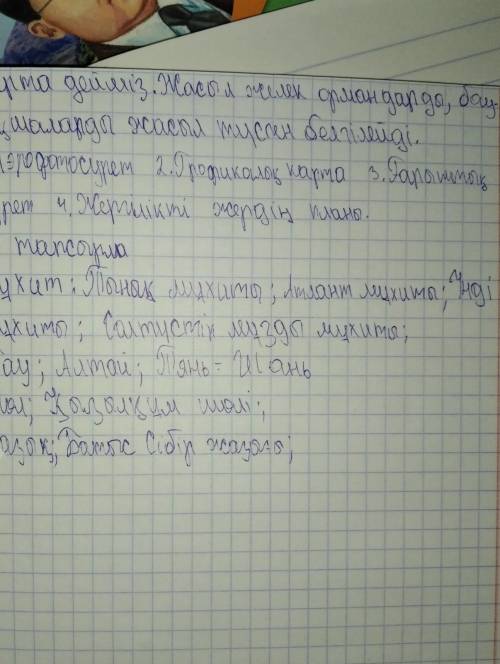 рта дейміз. Жасыл желек ормандарды, бау
шаларды жасыл түспен белгілейді.
аэрофотосурет 2. Графикалық карта 3. Ғарыштық
рет 4. Жергілікті жердің планы.
тапсырма
ұхит: Тынық мұхиты; Атлант мұхиты; Үнді
ұхиты; Солтүстік мұзды мұхиты;
ау; Алтай; Тянь-Шань
өл; Қызылқұм шөлі;
азық; Батыс Сібір жазығы;